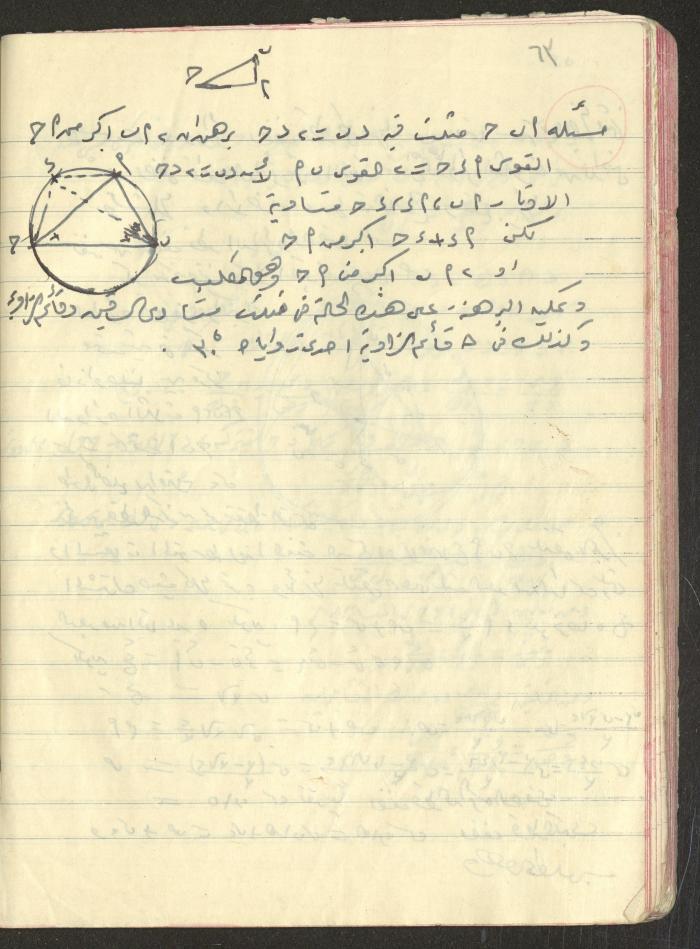 ٦٣
ب
ح م
مسئله م ب ح مثلث فيه د ب = ٢ د ح برهن ان ٢ م ب اكبر من م ح
القوس م ء ح = ٢ القوس ب م لأن د ب = ٢ د ح
الاوتار م ب ، م ء ، ء ح متساوية
لكن م ء + ء ح اكبر من م ح
او ٢ م ب اكبر من م ح وهو المطلوب
ويمكنه البرهنة على هذه الحالة في مثلث متساوى الساقين وقائم الزاوية
وكذلك في ح قائم الزاوية احدى زواياه ٣٠°
ء م
ح ب